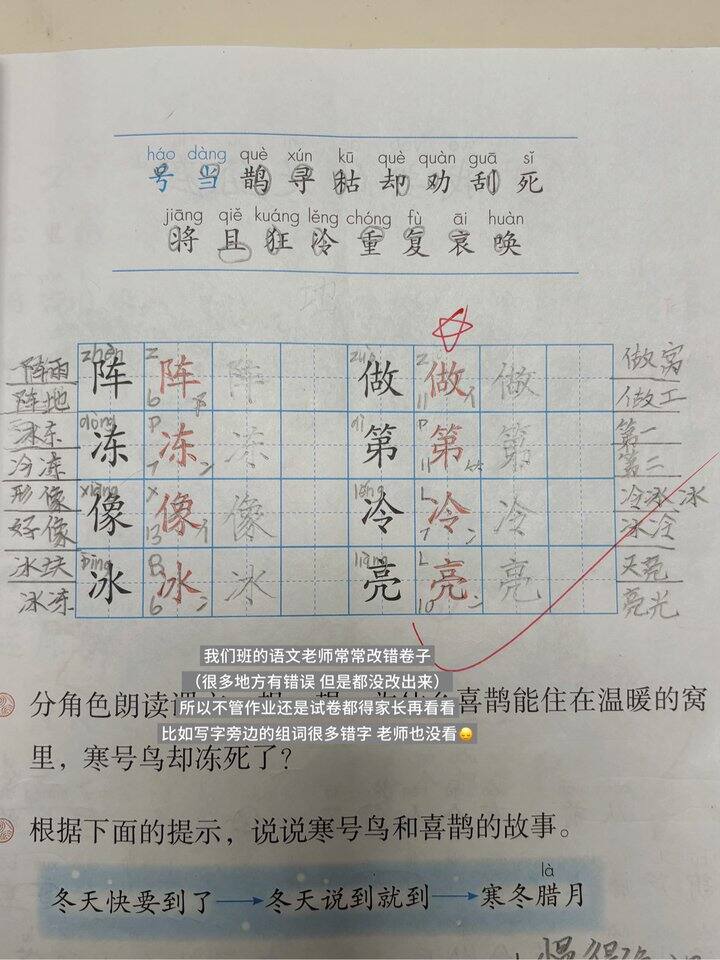 háo dàng què xún kū què quàn guā sǐ
号 当 鹊 寻 枯 却 劝 刮 死
jiāng qiě kuáng lěng chóng fù āi huàn
将 且 狂 冷 重 复 哀 唤
阵雨 zhèn 阵 Z 阵 6 阝 阵 zuò 做 Z 做 11 亻 做 做窝
阵地 做工
冰冻 dòng 冻 D 冻 7 冫 冻 dì 第 D 第 11 ⺮ 第 第一
冷冻 第二
形像 xiàng 像 X 像 13 亻 像 lěng 冷 L 冷 7 冫 冷 冷冰冰
好像 冰冷
bīng 冰 B 冰 6 冫 冰 liàng 亮 L 亮 10 亮 天亮
冰冻 亮光
我们班的语文老师常常改错卷子
（很多地方有错误 但是都没改出来）
所以不管作业还是试卷都得家长再看看
比如写字旁边的组词很多错字 老师也没看😔
分角色朗读 喜鹊能住在温暖的窝
里，寒号鸟却冻死了？
根据下面的提示，说说寒号鸟和喜鹊的故事。
là
冬天快要到了→冬天说到就到→寒冬腊月